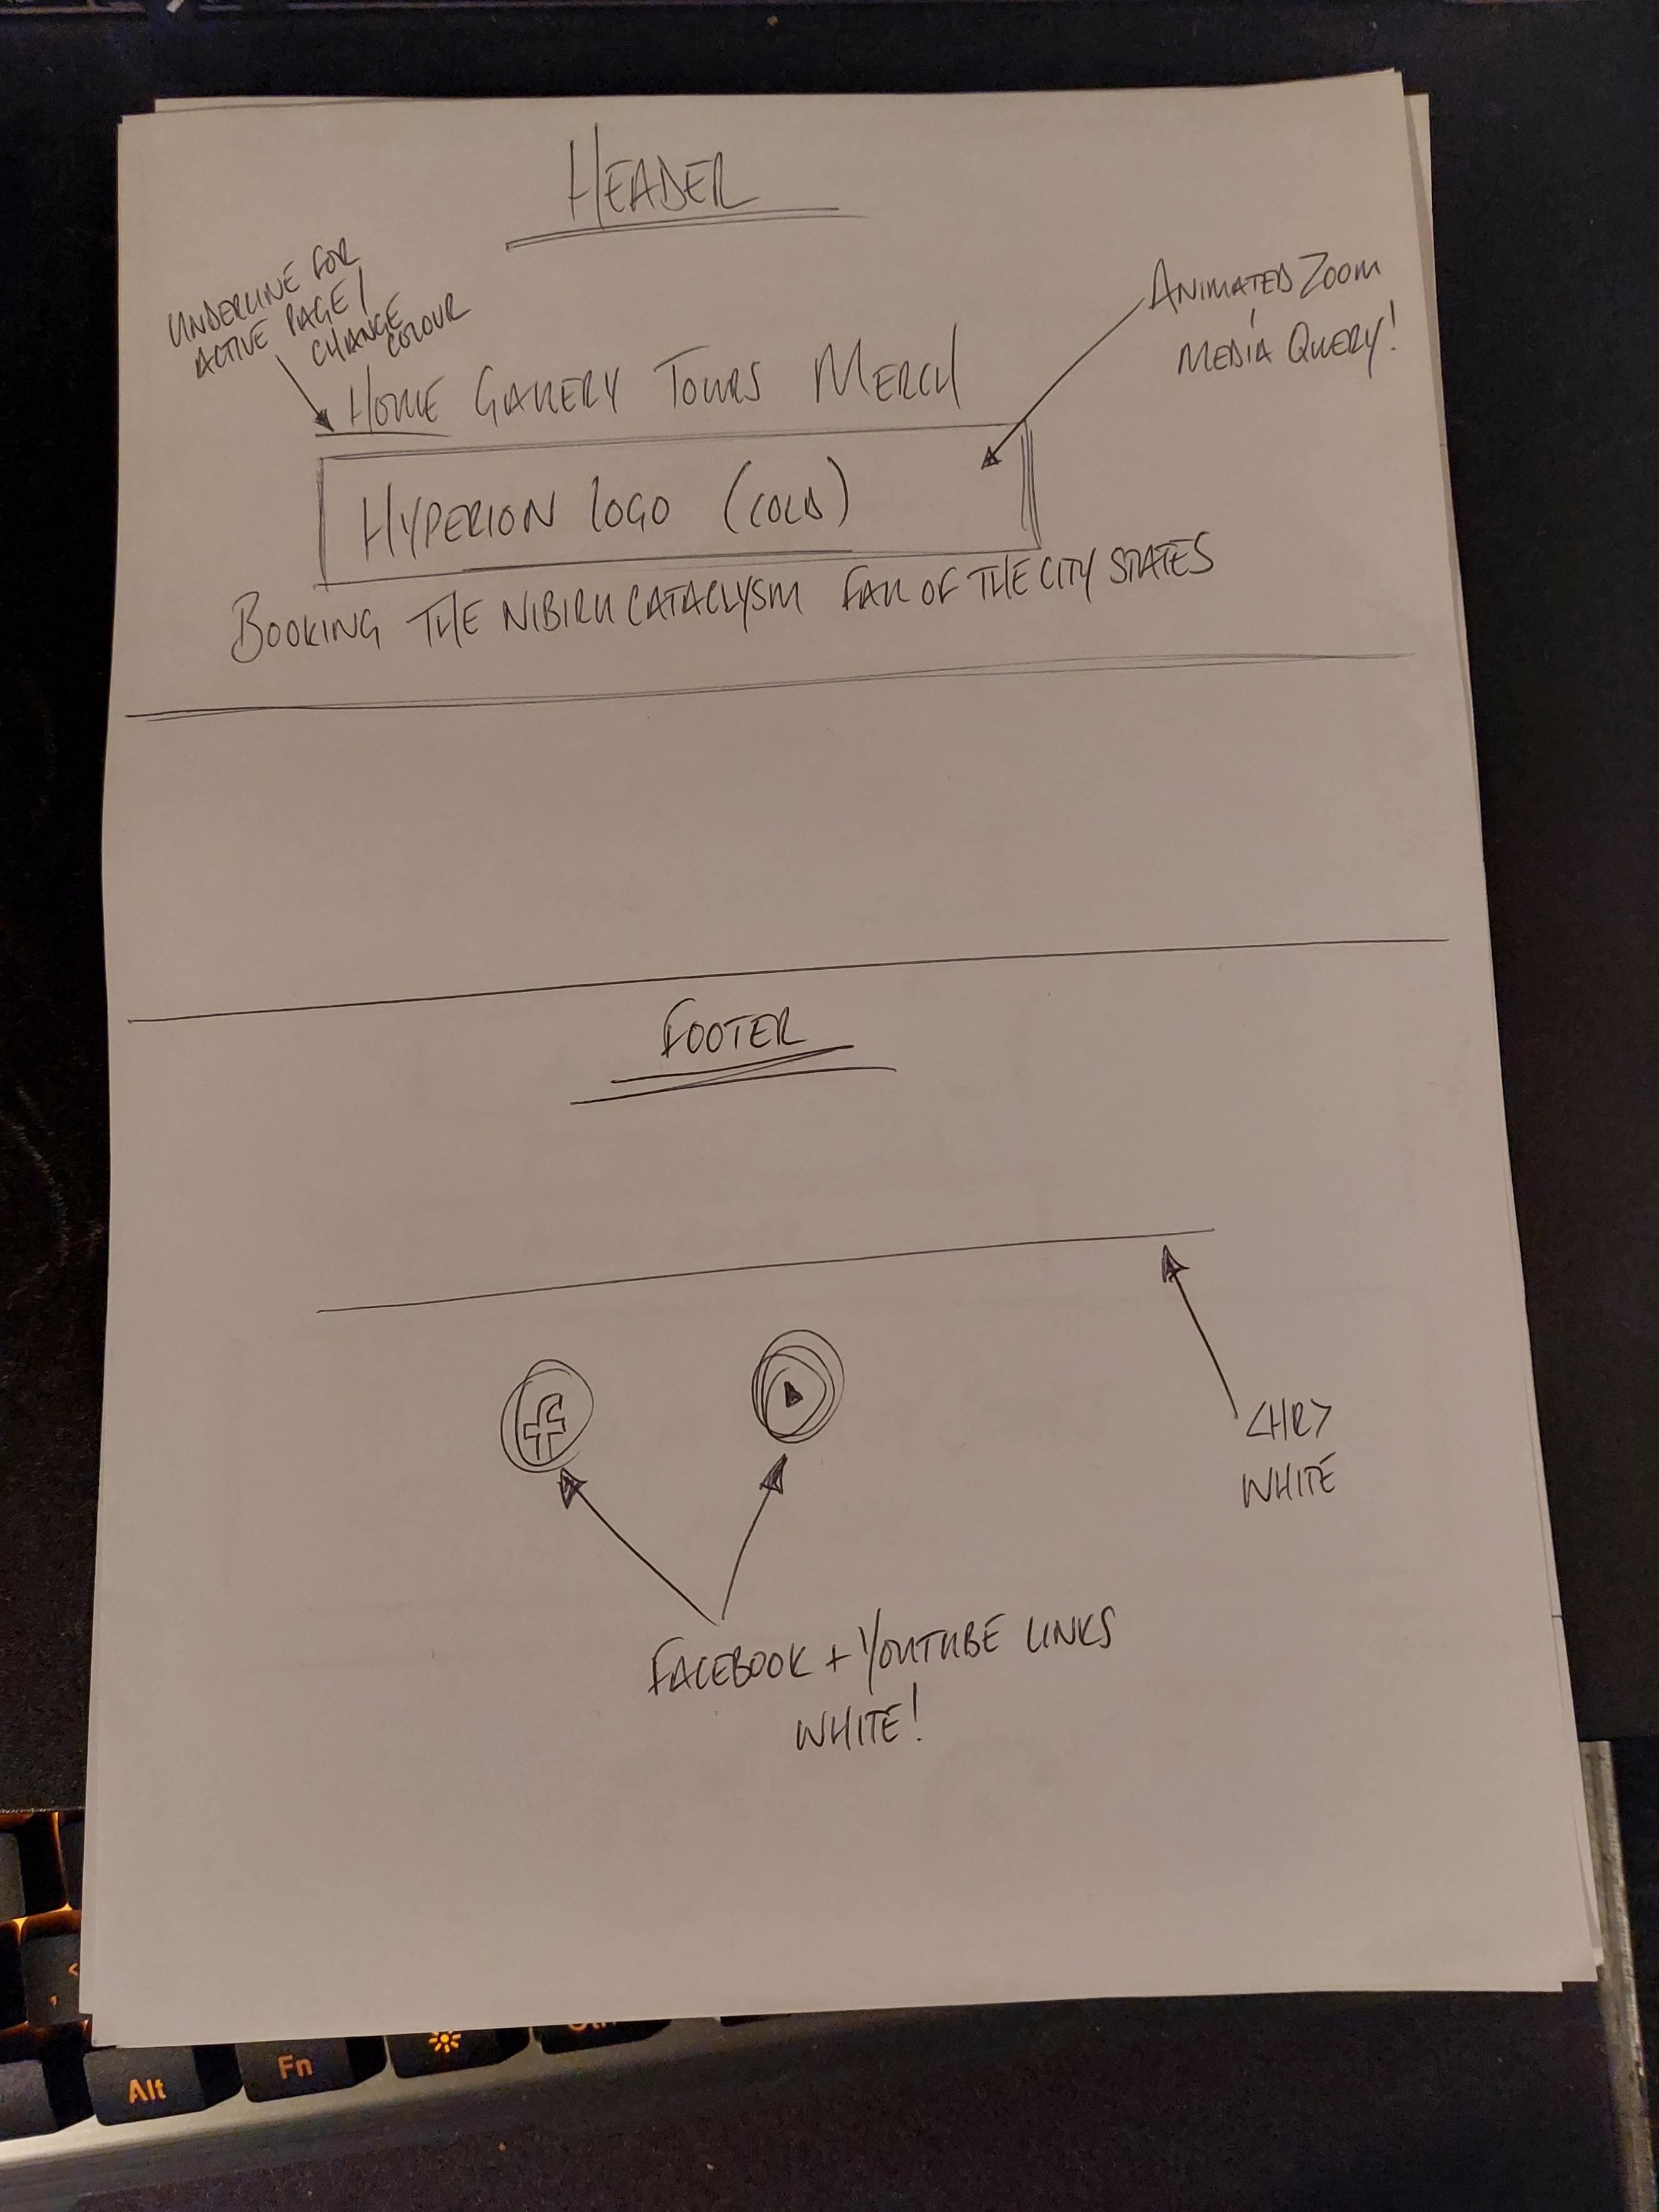 HEADER
UNDERLINE FOR
ACTIVE PAGE/
CHANGE
COLOUR
ANIMATED ZOOM
MEDIA QUERY!
HOME GALLERY TOURS MERCH
HYPERION LOGO (COLD)
BOOKING THE NIBIRU CATACLYSM FALL OF THE CITY STATES
FOOTER
f
<HR>
WHITE
FACEBOOK + YOUTUBE LINKS
WHITE!
<
,
Alt
Fn